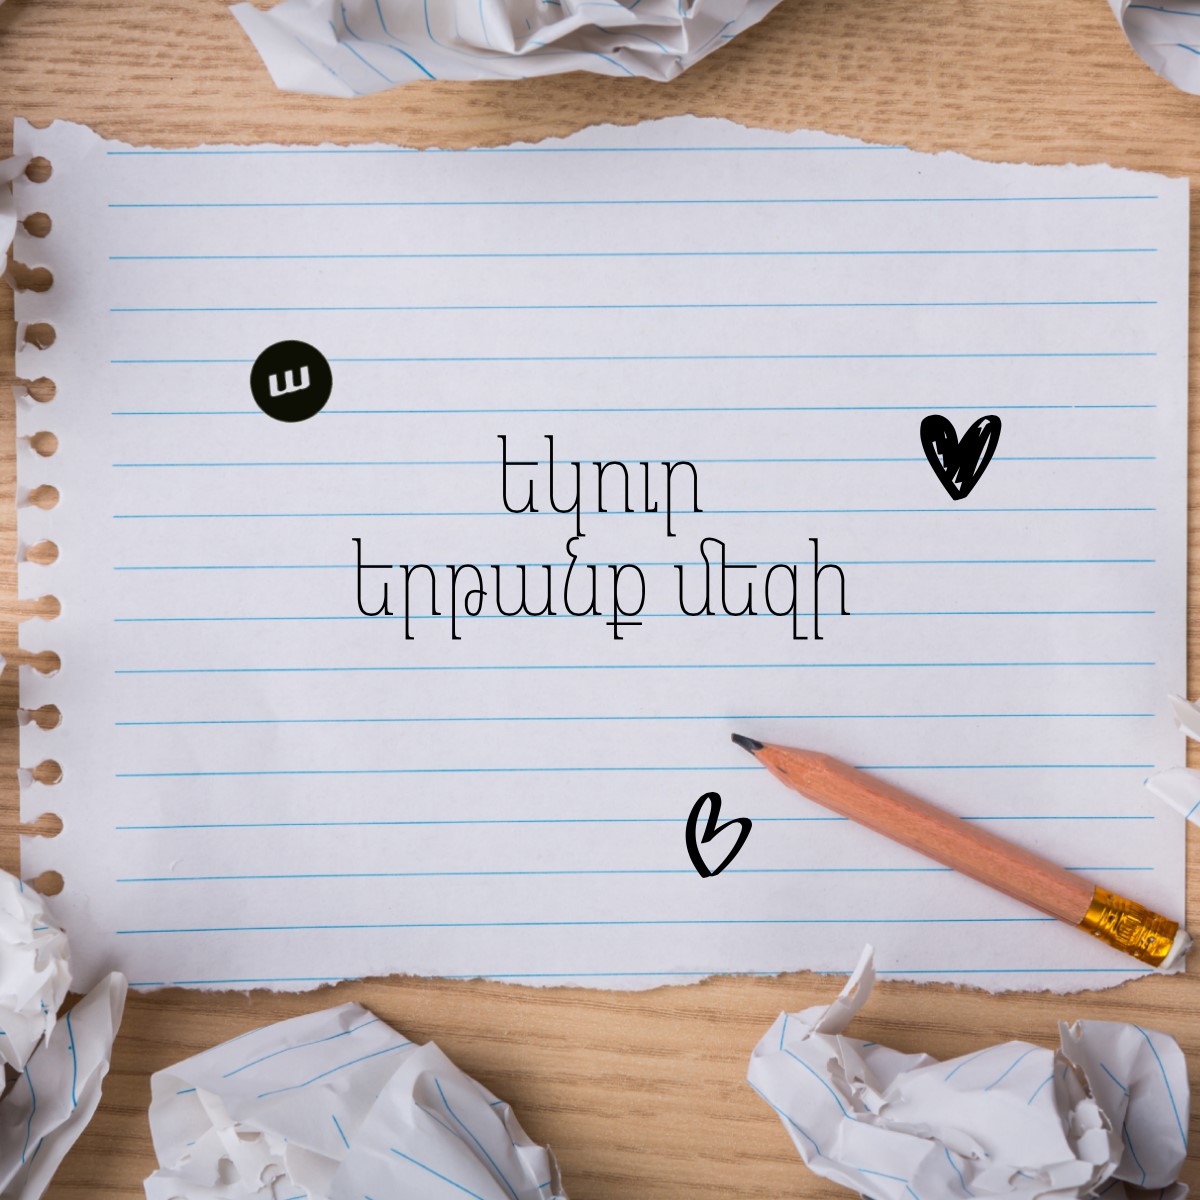 ա
եկուր
երթանք մեզի